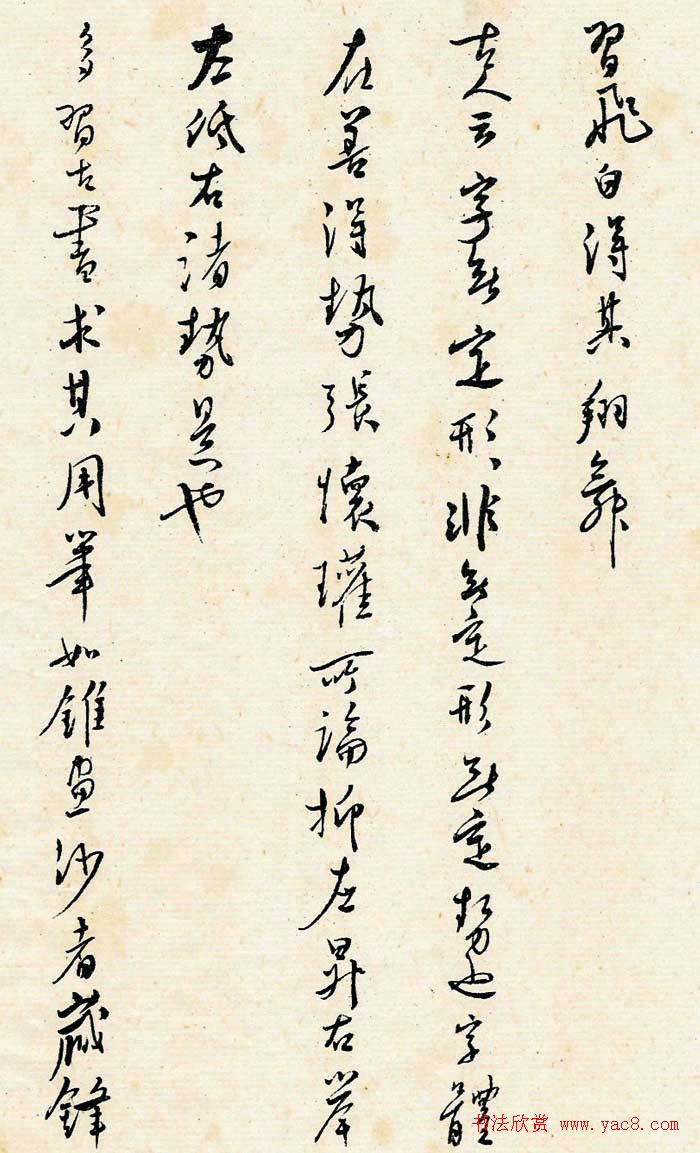 習飛白得其翔舞
古人云字無定形非無定形無定勢也字體
在善得勢張懷瓘所論抑左昇右舉
左低右諸勢是也
多習古畫求其用筆如錐畫沙者藏鋒
书法欣赏 www.yac8.com